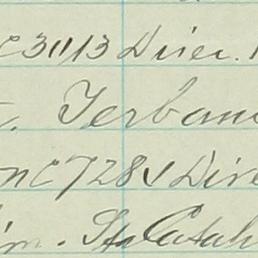 C 3013 Direc.
Yerbam
nC 728 Dire
m. Sta Catah